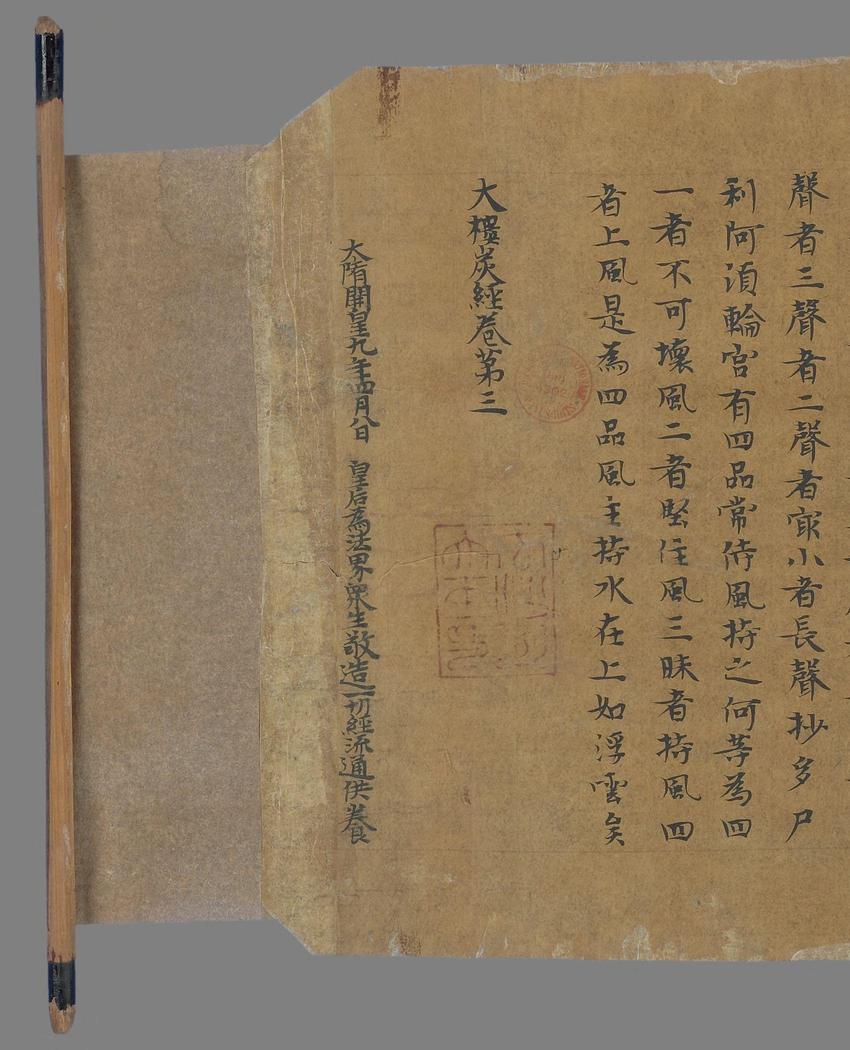 聲者三聲者二聲者冣小者長聲抄多尸
利阿湏輪宫有四品常侍風持之何等為四
一者不可壞風二者堅住風三昧者持風四
者上風是為四品風主持水在上如浮雲矣
大樓炭經卷第三
大隋開皇九年四月八日 皇后為法界衆生敬造一切經流通供養